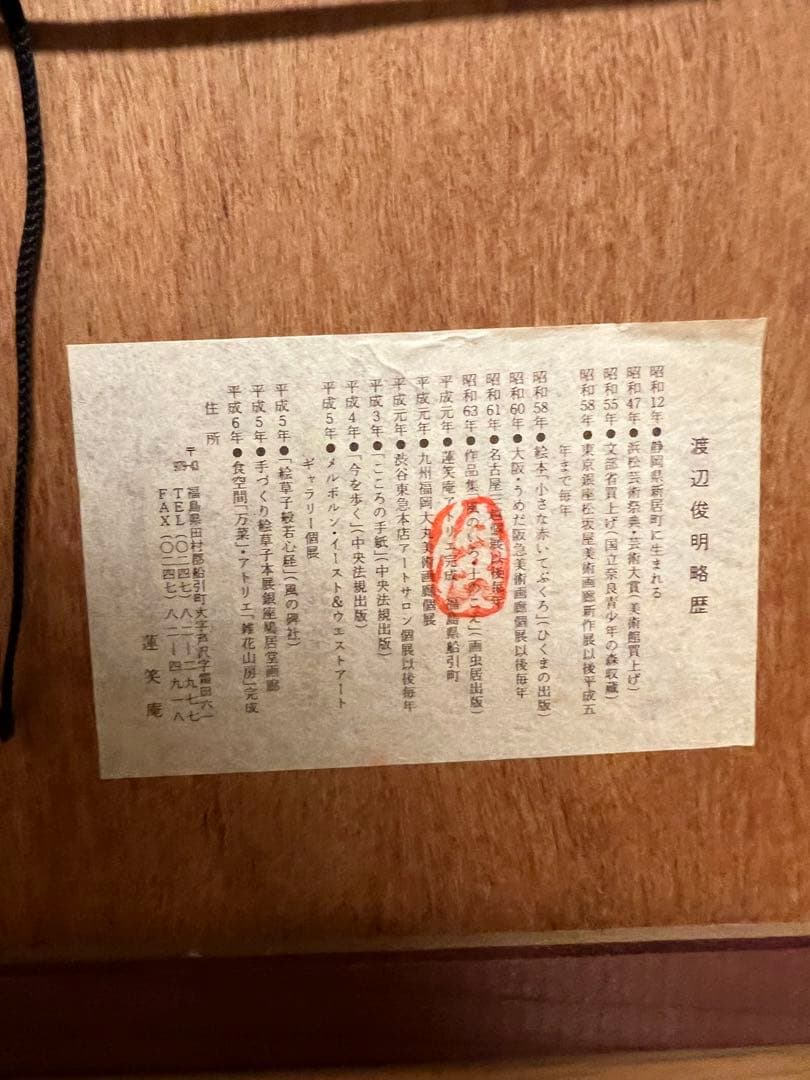 渡辺俊明略歴
昭和12年●静岡県新居町に生まれる
昭和47年●浜松芸術祭典・芸術大賞(美術館買上げ)
昭和55年●文部省買上げ(国立奈良青少年の森収蔵)
昭和58年●東京銀座松坂屋美術画廊新作展以後平成五
年まで毎年
昭和58年●絵本「小さな赤いてぶくろ」(ひくまの出版)
昭和60年●大阪・うめだ阪急美術画廊個展以後毎年
昭和61年●名古屋三越個展以後毎年
昭和63年●作品集「風のいろ・土のこえ」(画虫居出版)
平成元年●蓮笑庵アトリエ完成 福島県船引町
平成元年●九州福岡大丸美術画廊個展
平成元年●渋谷東急本店アートサロン個展以後毎年
平成3年●「こころの手紙」(中央法規出版)
平成4年●「今を歩く」(中央法規出版)
平成5年●メルボルン・イースト&ウエストアート
ギャラリー個展
平成5年●「絵草子般若心経」(風の碑社)
平成5年●手づくり絵草子本展銀座鳩居堂画廊
平成6年●食空間「万菜」・アトリエ「雑花山房」完成
住所
福島県田村郡船引町大字芦沢字霜田六一
TEL(〇二四七)八二―二九七七
FAX(〇二四七)八二―四九一八
蓮笑庵